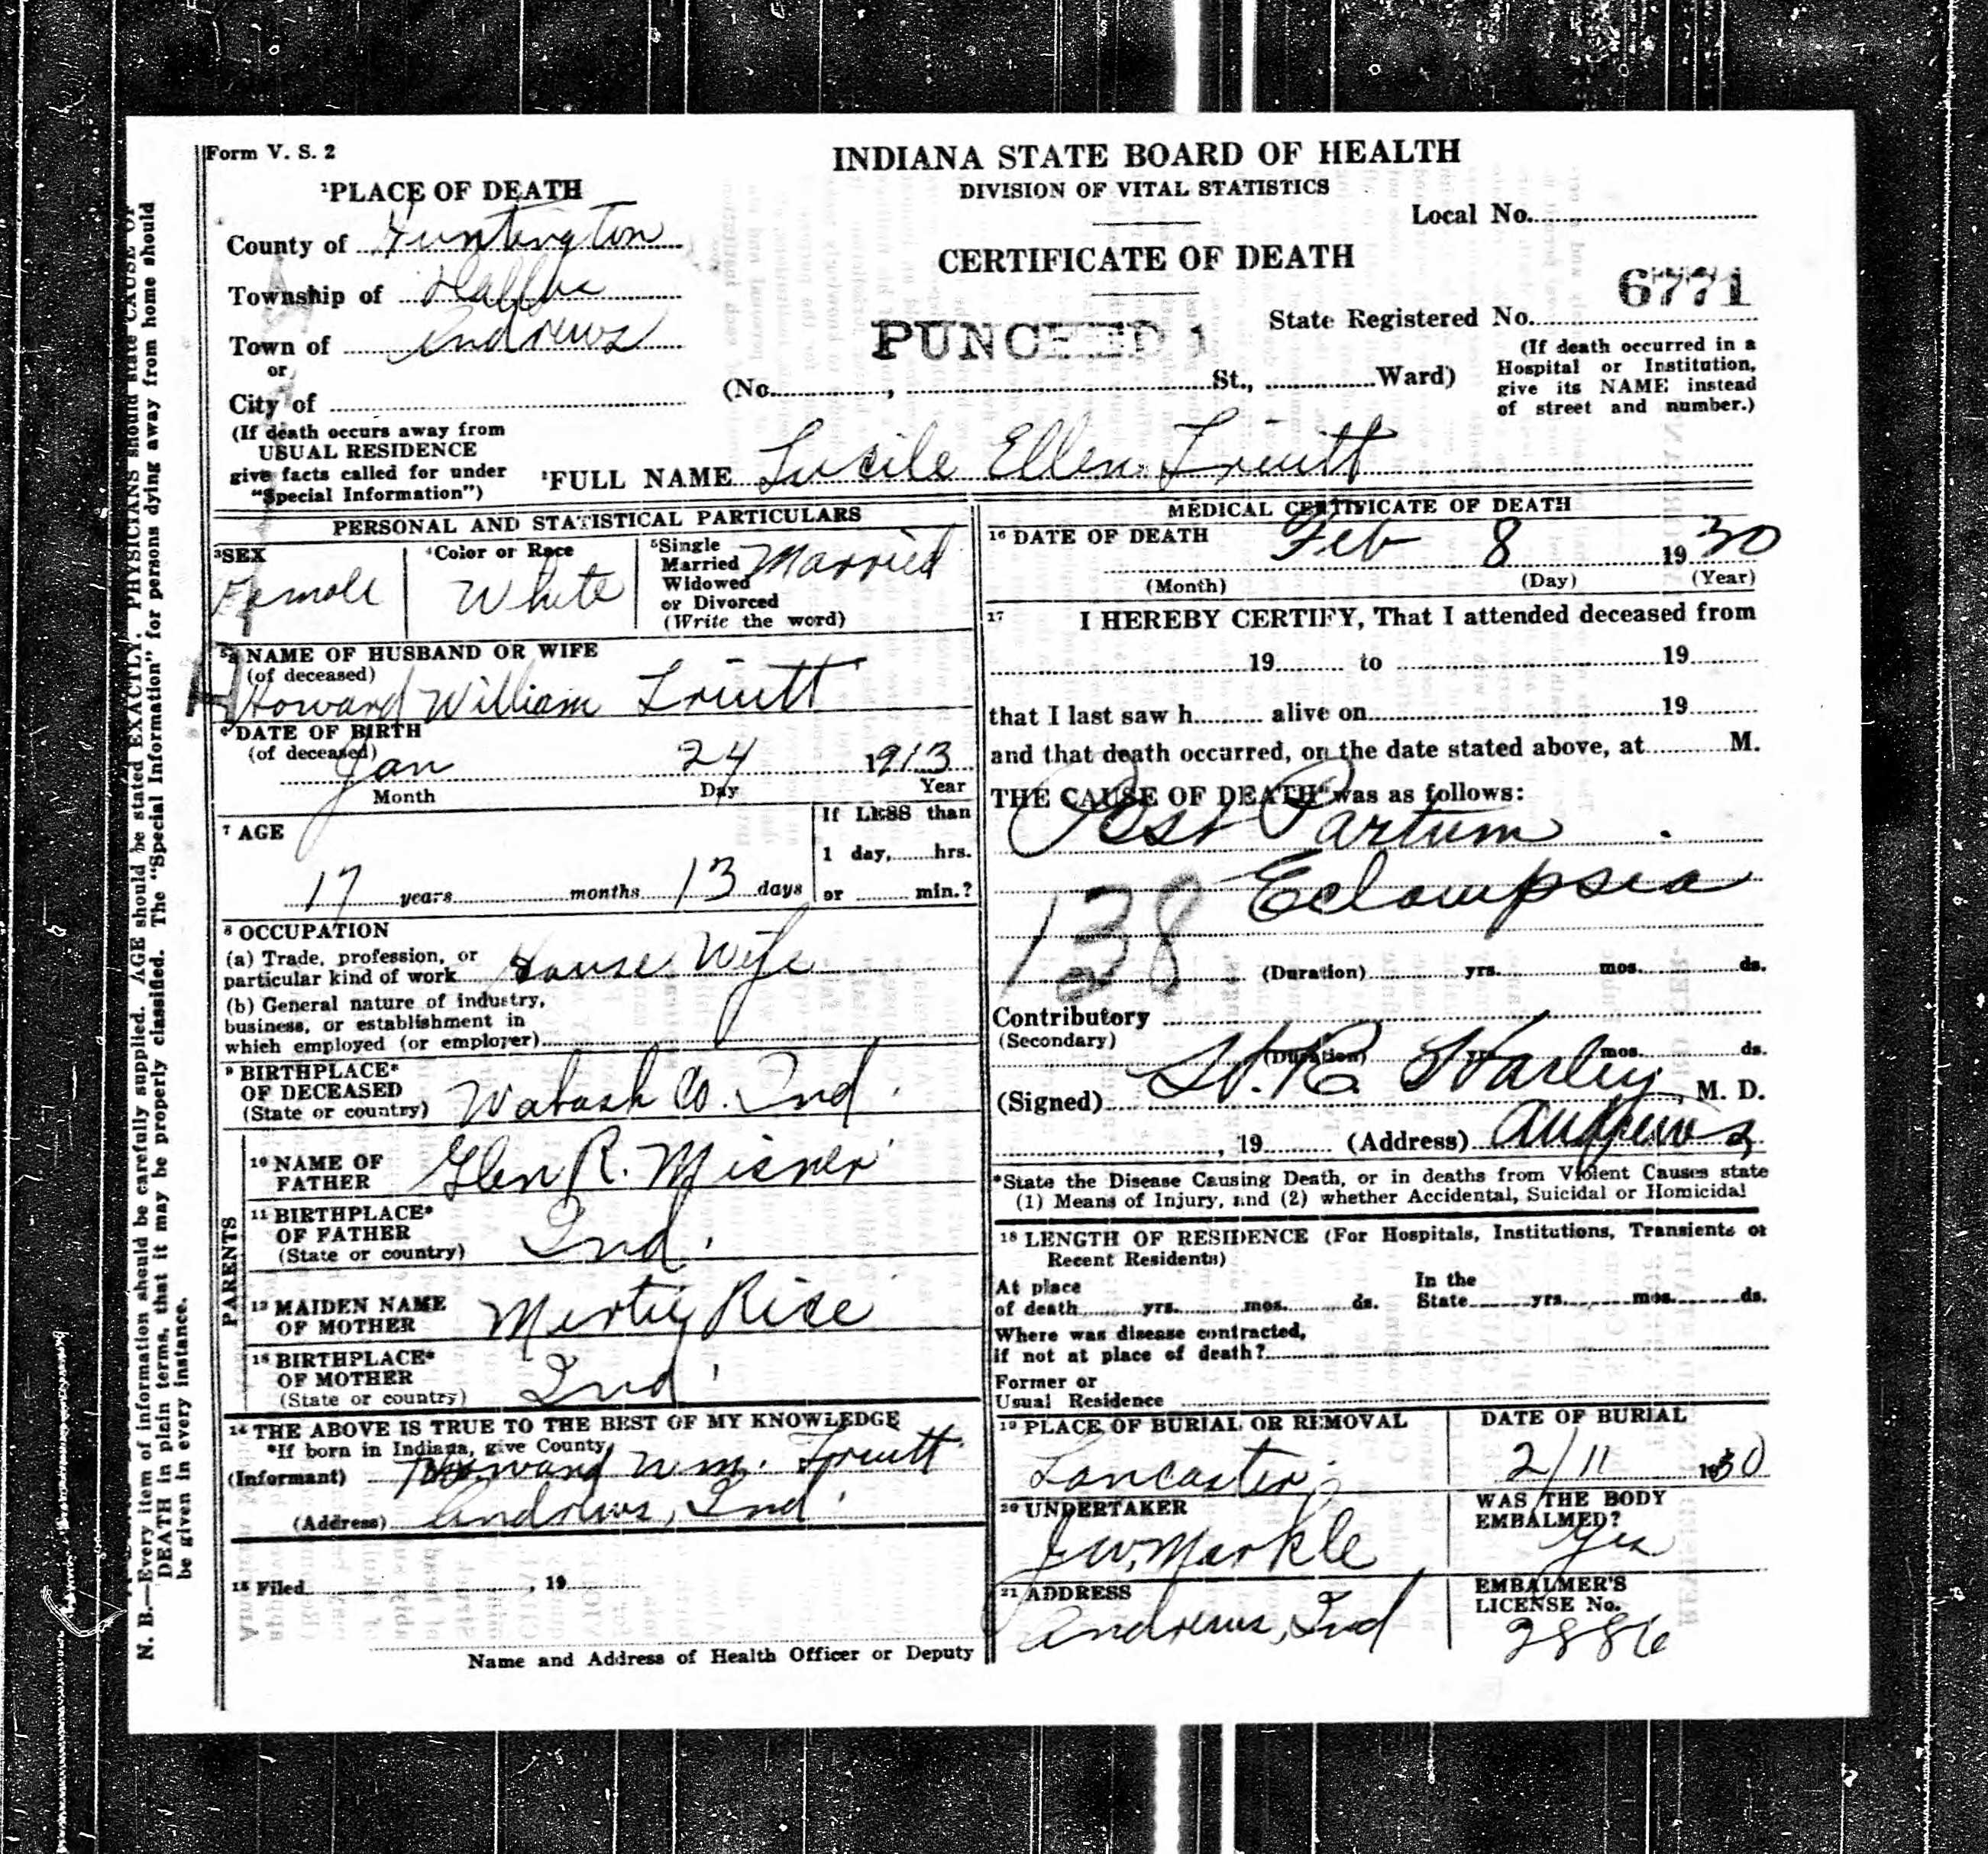 Form V. S. 2
INDIANA STATE BOARD OF HEALTH
DIVISION OF VITAL STATISTICS
CERTIFICATE OF DEATH
Local No.
6771
State Registered No.
PUNCHED 1
(If death occurred in a
Hospital or Institution,
give its NAME instead
of street and number.)
(No. , St., Ward)
1 PLACE OF DEATH
County of Huntington
Township of Dallas
Town of Andrews
or
City of
(If death occurs away from
USUAL RESIDENCE
give facts called for under
"Special Information")
FULL NAME Lucile Ellen Truitt
PERSONAL AND STATISTICAL PARTICULARS
3 SEX
Female
4 Color or Race
White
5 Single
Married
Widowed
or Divorced
(Write the word)
Married
5a NAME OF HUSBAND OR WIFE
(of deceased)
Howard William Truitt
6 DATE OF BIRTH
(of deceased)
Jan 24 1913
Month Day Year
7 AGE
17 years months 13 days
If LESS than
1 day, hrs.
or min.?
8 OCCUPATION
(a) Trade, profession, or
particular kind of work House Wife
(b) General nature of industry,
business, or establishment in
which employed (or employer)
9 BIRTHPLACE*
OF DECEASED
(State or country) Wabash Co. Ind.
PARENTS
10 NAME OF
FATHER Glen R. Misner
11 BIRTHPLACE*
OF FATHER
(State or country) Ind.
12 MAIDEN NAME
OF MOTHER Mertie Rice
13 BIRTHPLACE*
OF MOTHER
(State or country) Ind
14 THE ABOVE IS TRUE TO THE BEST OF MY KNOWLEDGE
*If born in Indiana, give County
(Informant) Howard Wm. Truitt
(Address) Andrews, Ind.
15 Filed , 19
Name and Address of Health Officer or Deputy
MEDICAL CERTIFICATE OF DEATH
16 DATE OF DEATH
Feb 8 1930
(Month) (Day) (Year)
17 I HEREBY CERTIFY, That I attended deceased from
19 to 19
that I last saw h alive on 19
and that death occurred, on the date stated above, at M.
THE CAUSE OF DEATH* was as follows:
Post Partum
Eclampsia
138
(Duration) yrs. mos. ds.
Contributory
(Secondary)
(Duration) yrs. mos. ds.
(Signed) M. D.
, 19 (Address) Andrews
*State the Disease Causing Death, or in deaths from Violent Causes state
(1) Means of Injury, and (2) whether Accidental, Suicidal or Homicidal
18 LENGTH OF RESIDENCE (For Hospitals, Institutions, Transients or
Recent Residents)
At place
of death yrs. mos. ds.
In the
State yrs. mos. ds.
Where was disease contracted,
if not at place of death?
Former or
Usual Residence
19 PLACE OF BURIAL OR REMOVAL
Lancaster
DATE OF BURIAL
2/11 1930
20 UNDERTAKER
J W. Markle
WAS THE BODY
EMBALMED?
Yes
21 ADDRESS
Andrews, Ind
EMBALMER'S
LICENSE No.
2886
N. B.—Every item of information should be carefully supplied. AGE should be stated EXACTLY. PHYSICIANS should state CAUSE OF
DEATH in plain terms, that it may be properly classified. The "Special Information" for persons dying away from home should
be given in every instance.